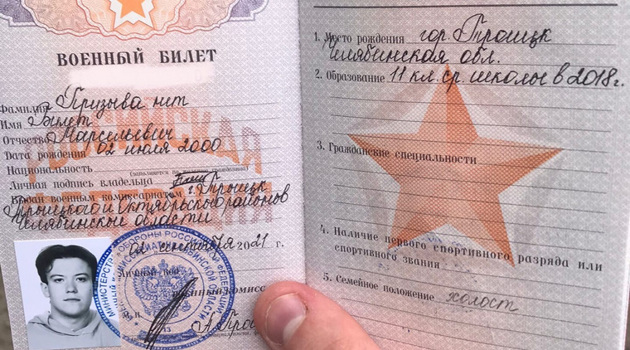 ВОЕННЫЙ БИЛЕТ
Фамилия Призыва нет
Имя
Отчество Марсельевич
Дата рождения 02 июля 2000
Национальность
Личная подпись владельца
Выдан военным комиссариатом г. Троицк
Троицкого и Октябрьского районов
Челябинской области
2021 г.
МИНИСТЕРСТВО ОБОРОНЫ РОССИЙСКОЙ ФЕДЕРАЦИИ
1. Место рождения гор Троицк
Челябинская обл.
2. Образование 11 кл. ср. школы в 2018г.
3. Гражданские специальности
4. Наличие первого спортивного разряда или
спортивного звания
5. Семейное положение холост